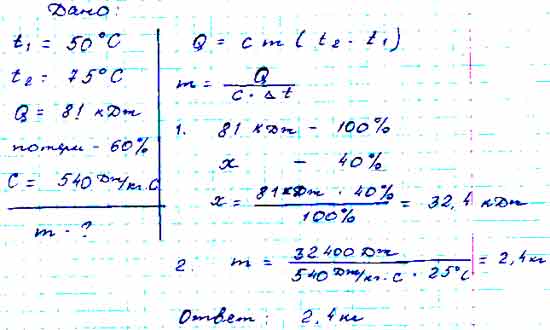 Дано:
t₁ = 50°C
t₂ = 75°C
Q = 81 кДж
потери - 60%
C = 540 Дж/кг.С
m - ?
Q = c m (t₂ - t₁)
m = Q / C · Δt
1. 81 кДж - 100%
x - 40%
x = 81 кДж · 40% / 100% = 32,4 кДж
2. m = 32400 Дж / 540 Дж/кг.С · 25°C = 2,4 кг
Ответ: 2,4 кг